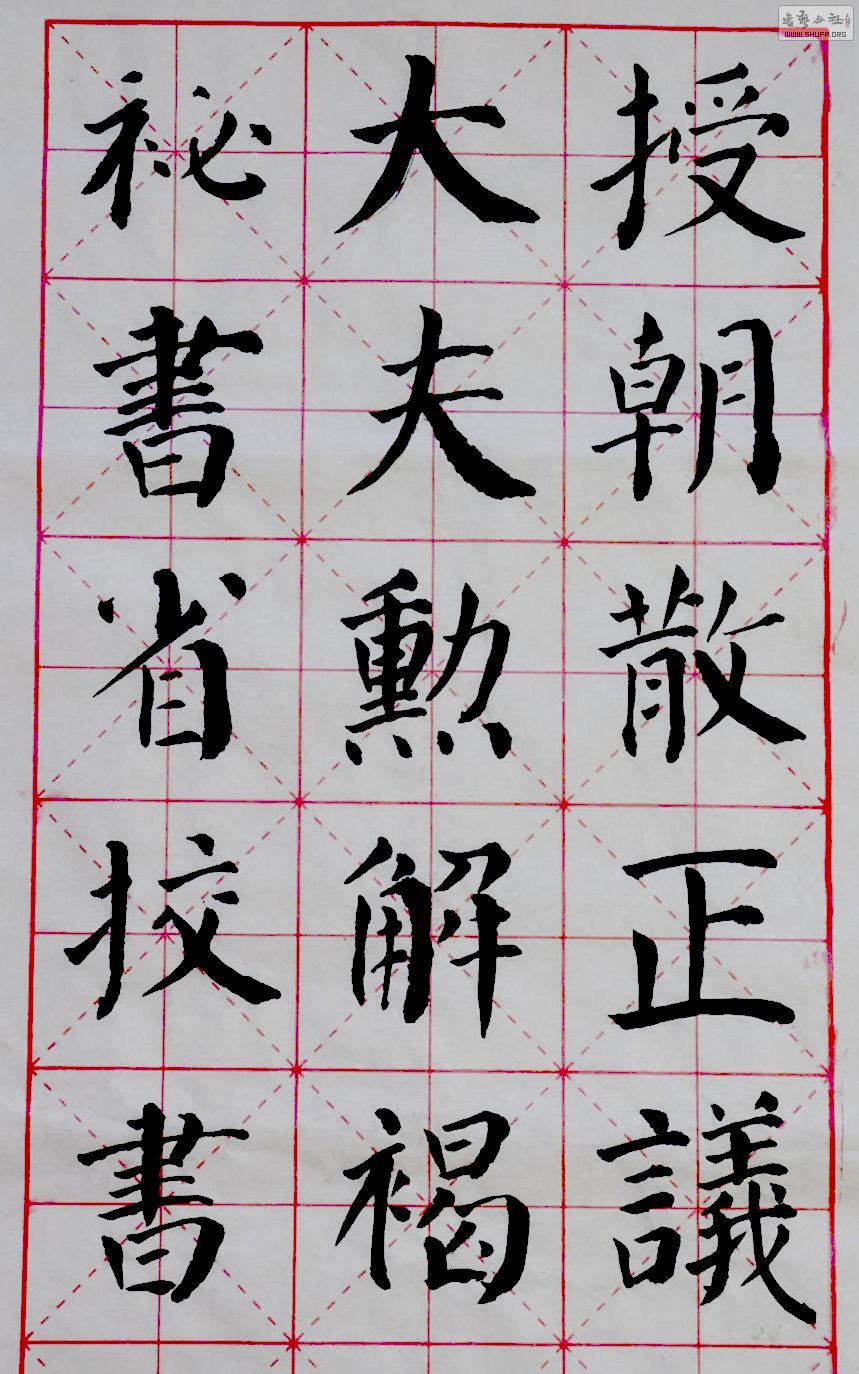 授朝散正議
大夫勲解褐
祕書省挍書
書藝公社
WWW.SHUFA.ORG